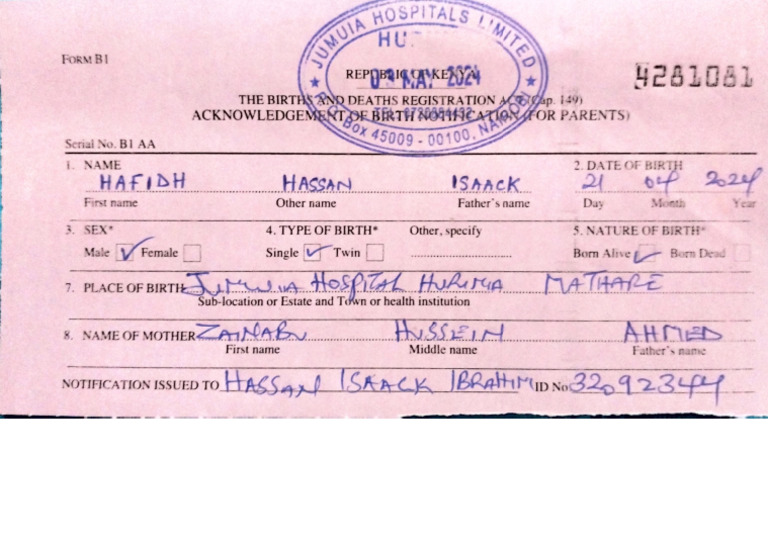 JUMUIA HOSPITALS LIMITED
HU
FORM B1
REPUBLIC OF KENYA
MAY 2024
4281081
THE BIRTHS AND DEATHS REGISTRATION ACT (Cap. 149)
ACKNOWLEDGEMENT OF BIRTH NOTIFICATION (FOR PARENTS)
P.O. Box 45009 - 00100, NAIROBI
Serial No. B1 AA
1. NAME 2. DATE OF BIRTH
HAFIDH HASSAN ISAACK 21 04 2024
First name Other name Father's name Day Month Year
3. SEX* 4. TYPE OF BIRTH* Other, specify 5. NATURE OF BIRTH*
Male Female Single Twin Born Alive Born Dead
7. PLACE OF BIRTH JUMUIA HOSPITAL HURUMA MATHARE
Sub-location or Estate and Town or health institution
8. NAME OF MOTHER ZAINABU HUSSEIN AHMED
First name Middle name Father's name
NOTIFICATION ISSUED TO HASSAN ISAACK IBRAHIM ID No 32092344